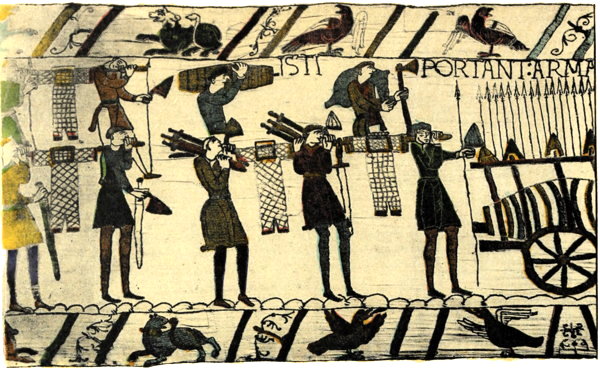 ISTI PORTANT: ARMA